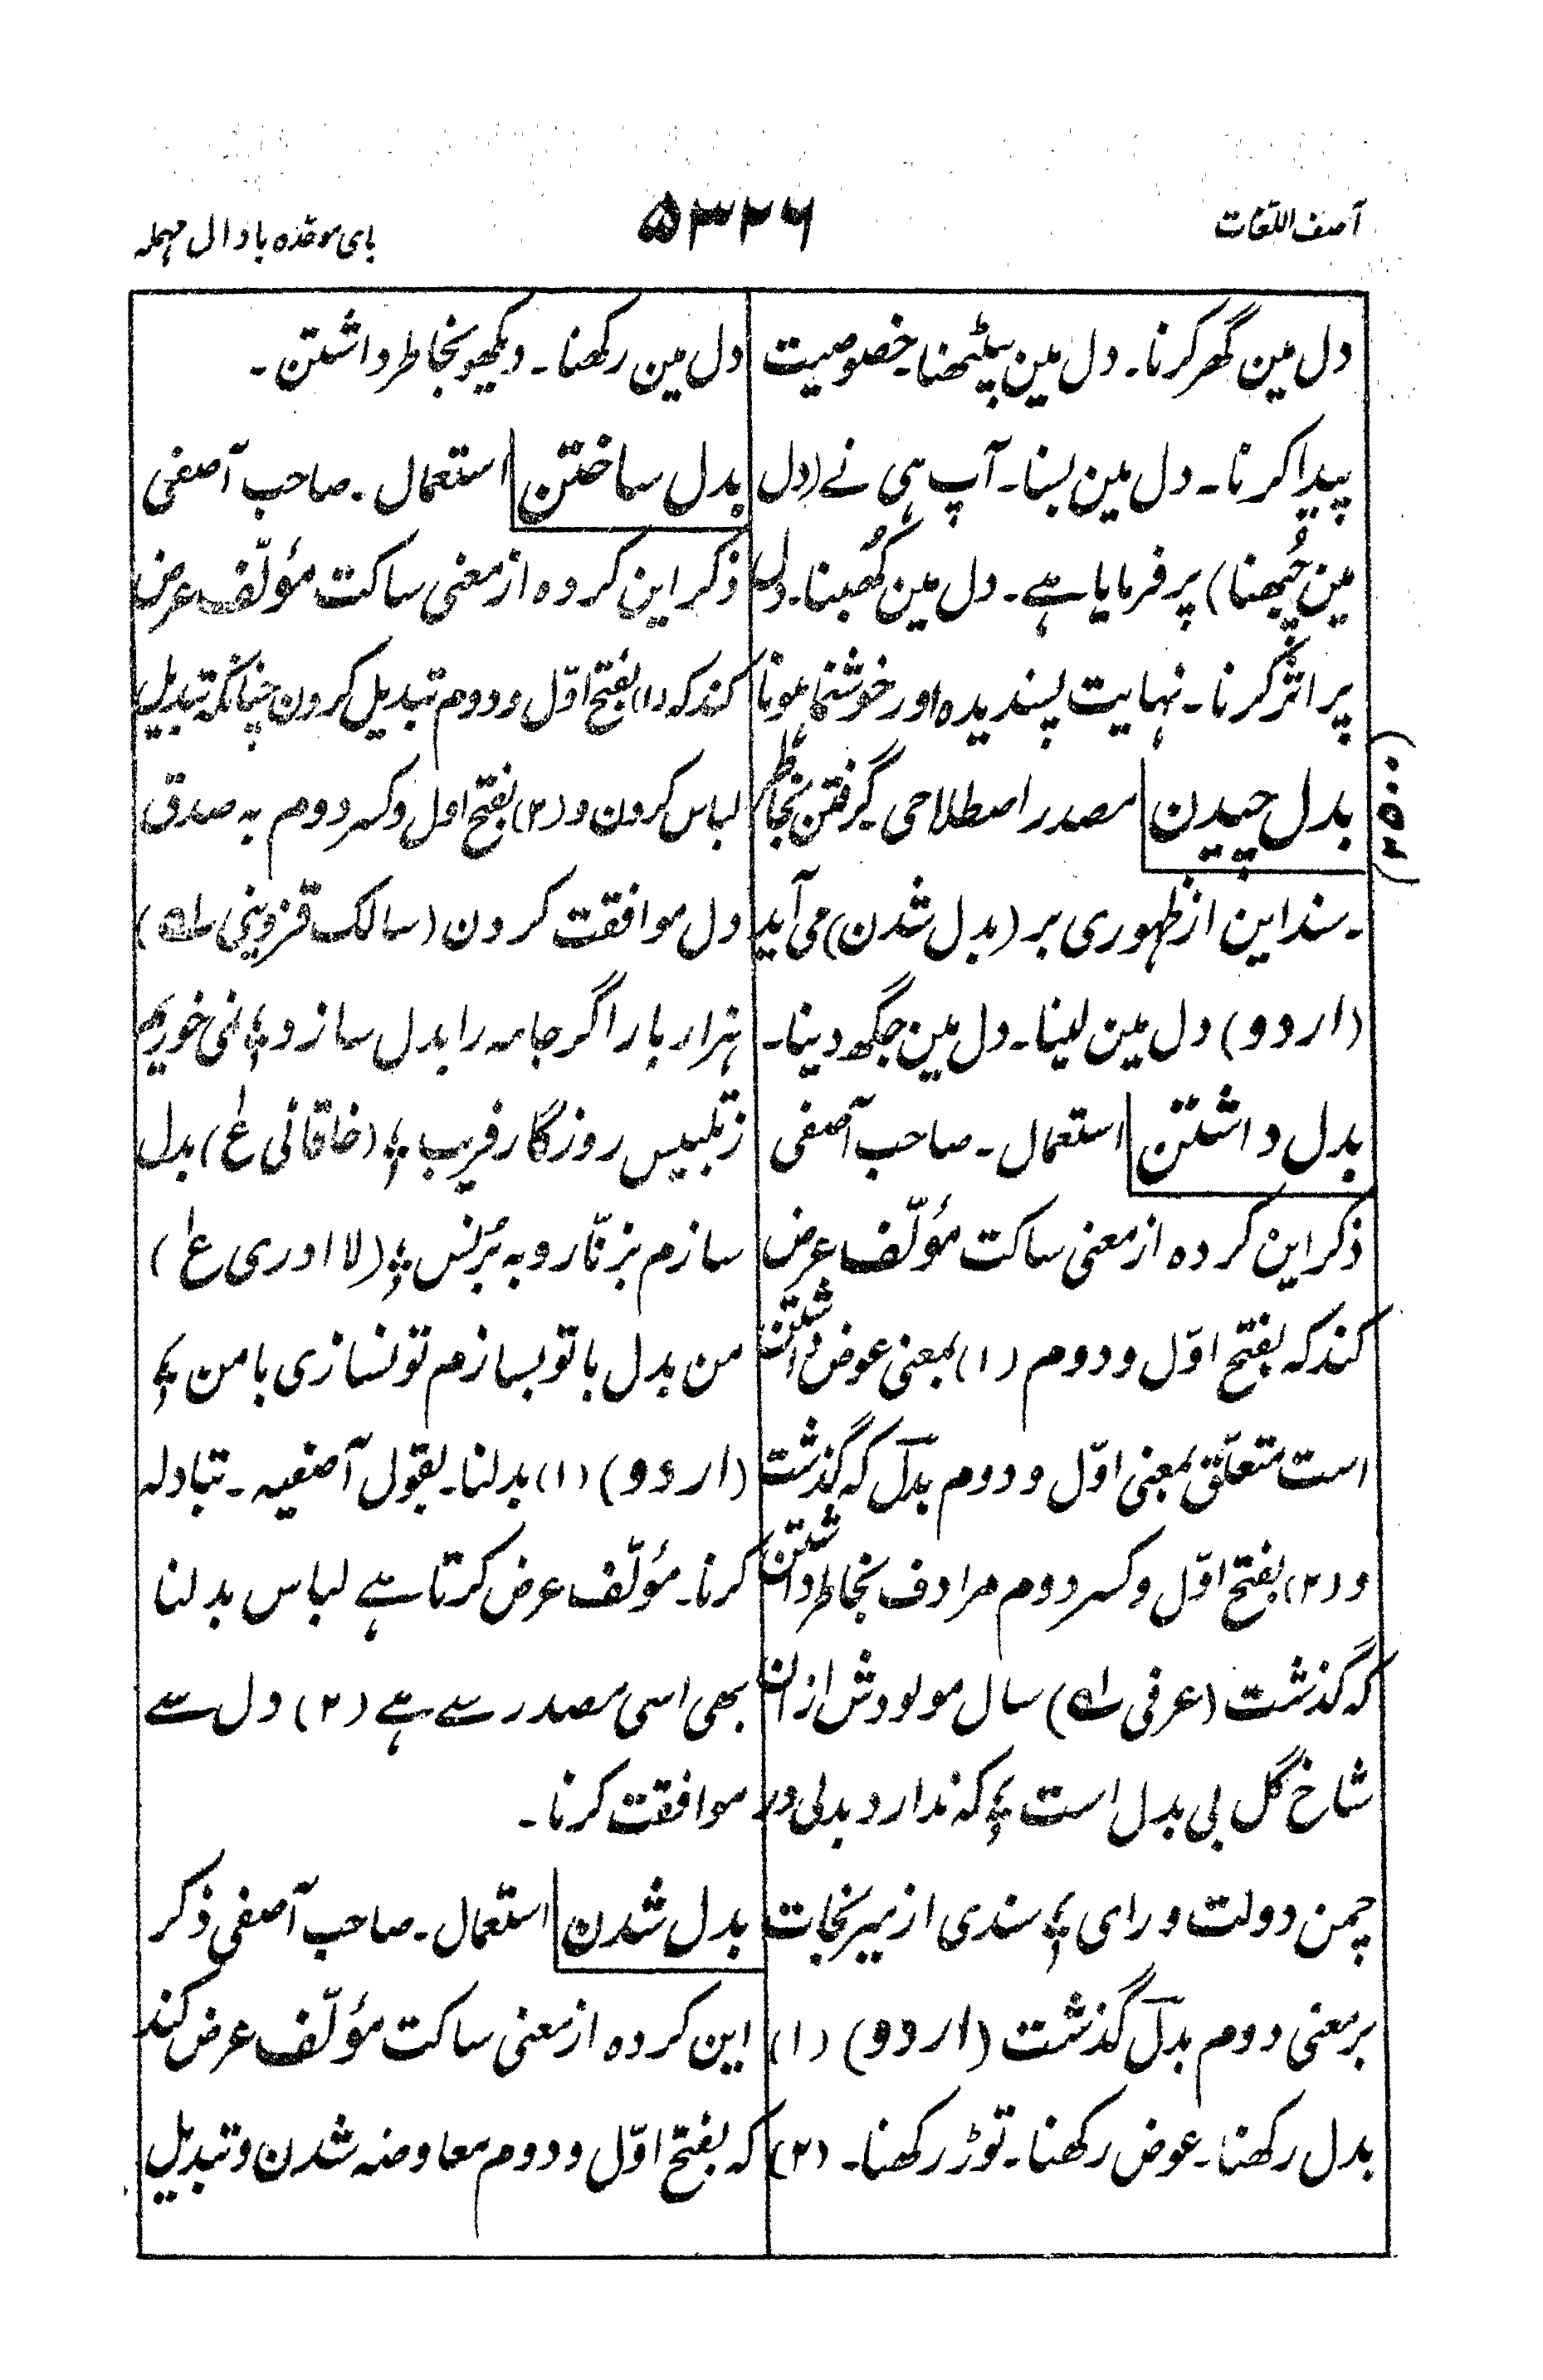 آصف اللغات
۵۳۲۶
بای موحّده با دال مہملہ
دل مین گھر کرنا۔ دل مین بیٹھنا۔ خصوصیت
پیدا کرنا۔ دل مین بسنا۔ آپ ہی نے (دل
مین چُبھنا) پر فرمایا ہے۔ دل مین کھُبنا۔ دل
پر اثر کرنا۔ نہایت پسندیدہ اور خوشنما ہونا
بدل چیدن مصدر اصطلاحی۔ گرفتن بخاطر
۔ سند این از ظہوری بر (بدل شدن) می آید
(اردو) دل مین لینا۔ دل مین جگھ دینا۔
بدل داشتن استعمال۔ صاحب آصفی
ذکر این کردہ از معنی ساکت مؤلّف عرض
کند کہ بفتح اوّل و دوم (۱) بمعنی عوض داشتن
است متعلّق بمعنی اوّل و دوم بدلؔ کہ گذشت
و (۲) بفتح اوّل و کسر دوم مرادف بخاطر داشتن
کہ گذشت (عرفی ؎) سال مولودش ازان
شاخ گل بی بدل است ؛ کہ ندارد بدلی در
چمن دولت و رای ؛ سندی از میر نجات
بر معنی دوم بدلؔ گذشت (اردو) (۱)
بدل رکھنا۔ عوض رکھنا۔ توڑ رکھنا۔ (۲)
دل مین رکھنا۔ دیکھو بخاطر داشتن۔
بدل ساختن استعمال۔ صاحب آصفی
ذکر این کردہ از معنی ساکت مؤلّف عرض
کند کہ (۱) بفتح اوّل و دوم تبدیل کردن چنانکہ تبدیل
لباس کردن و (۲) بفتح اول و کسر دوم بہ صدق
دل موافقت کردن (سالک قزوینی ؎)
ہزار بار اگر جامہ را بدل سازد ؛ نمی خوریم
ز تلبیس روزگار فریب ؛ (خاقانی ع) بدل
سازم بزنّار و بہ بُرنس ؛ (لا ادری ع)
من بدل با تو بسازم تو نسازی با من ؛
(اردو) (۱) بدلنا۔ بقول آصفیہ۔ تبادلہ
کرنا۔ مؤلّف عرض کرتا ہے لباس بدلنا
بھی اسی مصدر سے ہے (۲) دل سے
موافقت کرنا۔
بدل شدن استعمال۔ صاحب آصفی ذکر
این کردہ از معنی ساکت مؤلّف عرض کند
کہ بفتح اوّل و دوم معاوضہ شدن و تبدیل